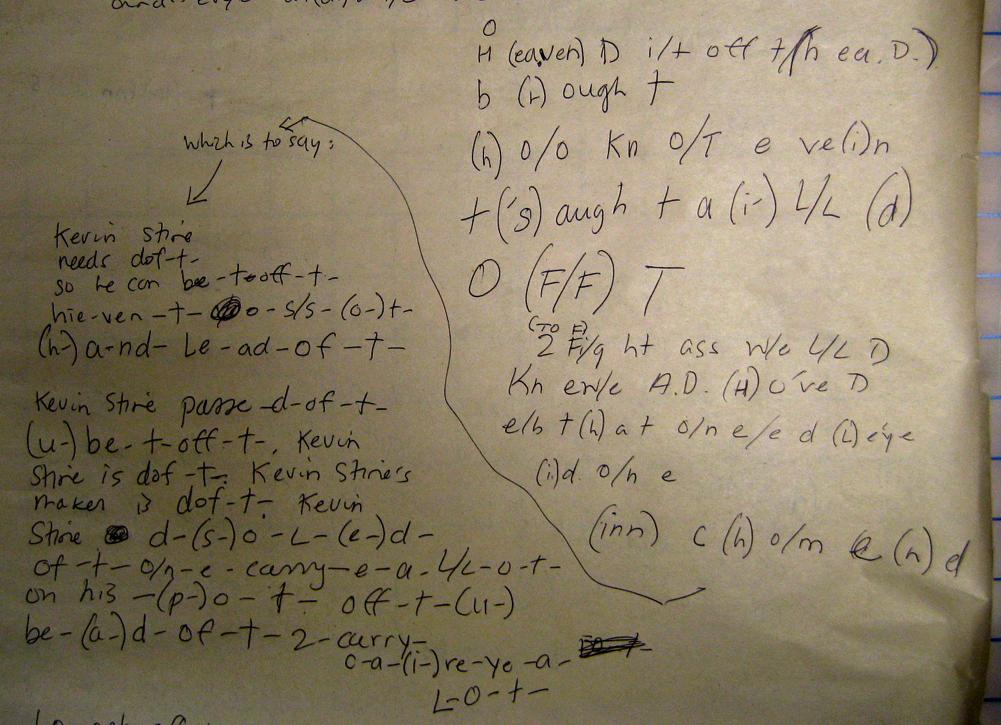 which is to say:
Kevin Stire
needs dof-t-
so he can be-t-off-t-
hie-ven-t- o-s/s-(o-)t-
(h-)a-nd- Le-ad-of-t-
Kevin Stire passe-d-of-t-
(u-)be-t-off-t-. Kevin
Stire is dof-t-. Kevin Stire's
maker is dof-t-. Kevin
Stire d-(s-)o-L-(e-)d-
of-t-o/n-e-carry-e-a-L/L-o-t-
on his -(p-)o-t- off-t-(u-)
be-(a-)d-of-t-2-carry-
c-a-(i-)re-ye-a-
L-o-t-
O
H (eaven) D i/t off t/h ea. D.)
b (r) ough t
(h) o/o Kn o/T e ve(i)n
t('s) augh t a (i-) L/L (d)
O (F/F) T
(TO F)
2 Fi/g ht ass w/e L/L D
Kn ew/e A.D. (H) o've D
e/b t(h) a t o/n e/e d (L) eye
(i)d o/n e
(inn) c (h) o/m e (n) d